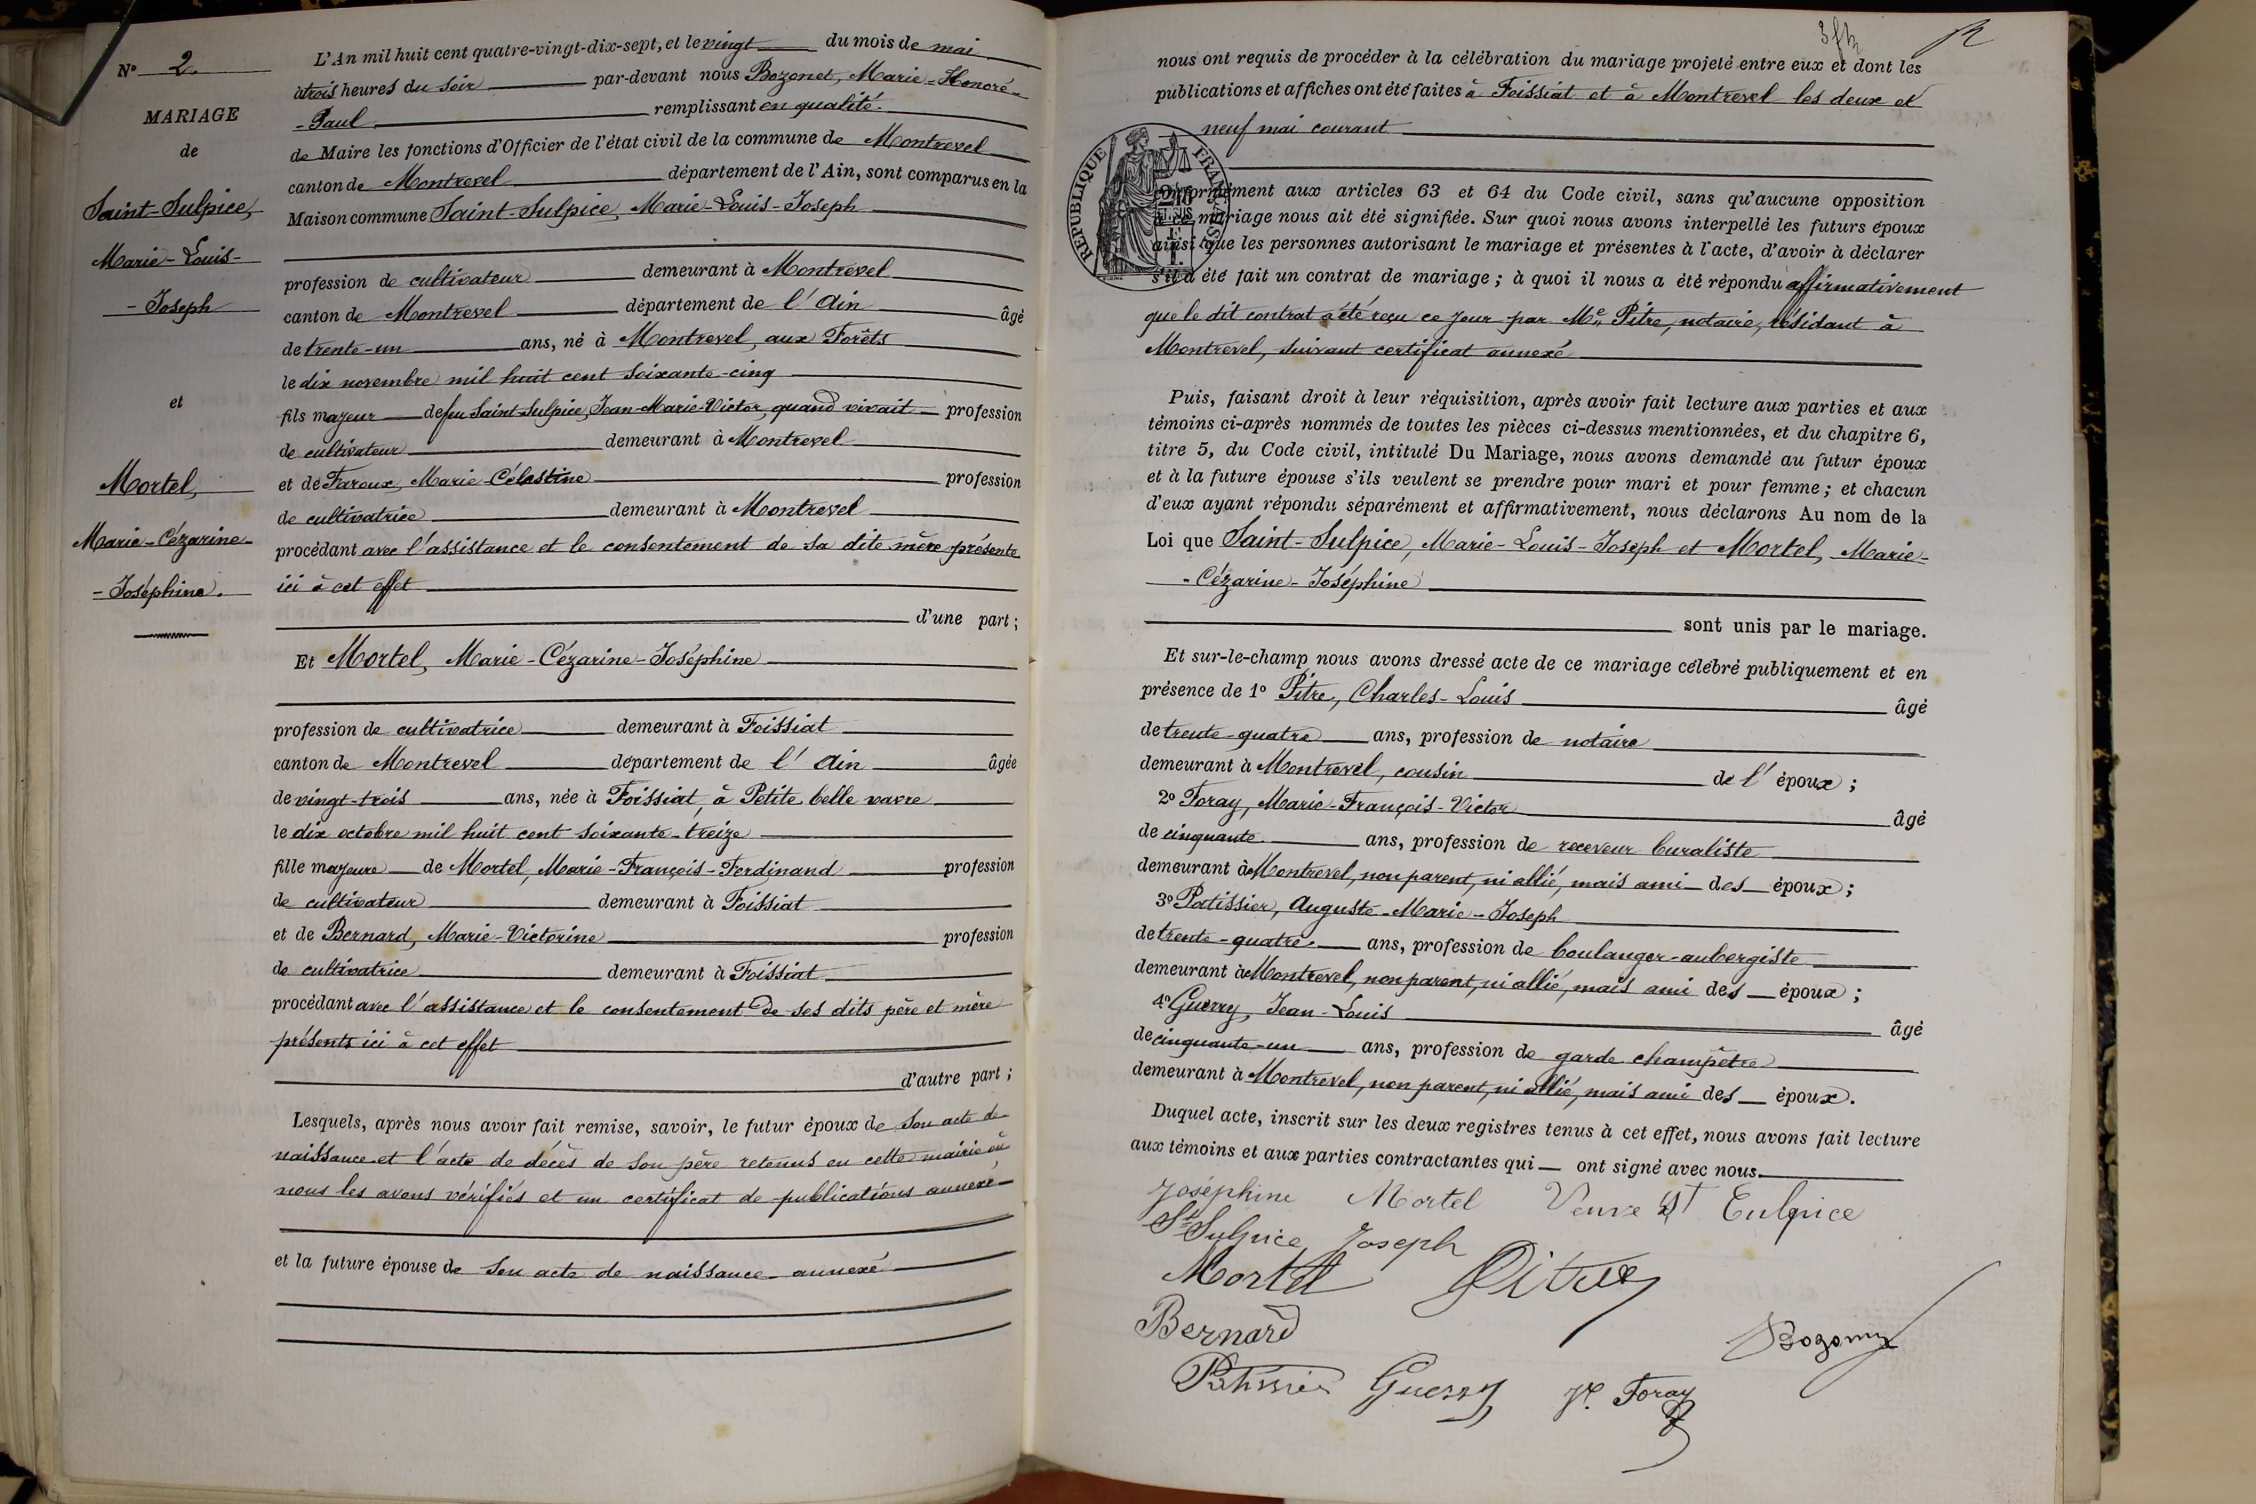 N° 2.
MARIAGE
de
Saint-Sulpice,
Marie-Louis-
-Joseph
et
Mortel,
Marie-Cézarine-
-Joséphine.
L'An mil huit cent quatre-vingt-dix-sept, et le vingt du mois de mai
à trois heures du soir par-devant nous Bozonet, Marie-Honoré-
-Paul remplissant en qualité
de Maire les fonctions d'Officier de l'état civil de la commune de Montrevel
canton de Montrevel département de l'Ain, sont comparus en la
Maison commune Saint-Sulpice, Marie-Louis-Joseph
profession de cultivateur demeurant à Montrevel
canton de Montrevel département de l'Ain âgé
de trente-un ans, né à Montrevel, aux Forêts
le dix novembre mil huit cent soixante-cinq
fils majeur de feu Saint-Sulpice, Jean-Marie-Victor, quand vivait profession
de cultivateur demeurant à Montrevel
et de Faroux, Marie-Célestine profession
de cultivatrice demeurant à Montrevel
procédant avec l'assistance et le consentement de sa dite mère présente
ici à cet effet
d'une part;
Et Mortel, Marie-Cézarine-Joséphine
profession de cultivatrice demeurant à Foissiat
canton de Montrevel département de l'Ain âgée
de vingt-trois ans, née à Foissiat, à Petite belle vavre
le dix octobre mil huit cent soixante-treize
fille majeure de Mortel, Marie-François-Ferdinand profession
de cultivateur demeurant à Foissiat
et de Bernard, Marie-Victorine profession
de cultivatrice demeurant à Foissiat
procédant avec l'assistance et le consentement de ses dits père et mère
présents ici à cet effet
d'autre part;
Lesquels, après nous avoir fait remise, savoir, le futur époux de son acte de
naissance et l'acte de décès de son père retenus en cette mairie où
nous les avons vérifiés et un certificat de publications annexé
et la future épouse de son acte de naissance annexé
nous ont requis de procéder à la célébration du mariage projeté entre eux et dont les
publications et affiches ont été faites à Foissiat et à Montrevel les deux et
neuf mai courant
RÉPUBLIQUE FRANÇAISE
conformément aux articles 63 et 64 du Code civil, sans qu'aucune opposition
à ce mariage nous ait été signifiée. Sur quoi nous avons interpellé les futurs époux
ainsi que les personnes autorisant le mariage et présentes à l'acte, d'avoir à déclarer
s'il a été fait un contrat de mariage; à quoi il nous a été répondu affirmativement
que le dit contrat a été reçu ce jour par Me Pitre, notaire, résidant à
Montrevel, suivant certificat annexé
Puis, faisant droit à leur réquisition, après avoir fait lecture aux parties et aux
témoins ci-après nommés de toutes les pièces ci-dessus mentionnées, et du chapitre 6,
titre 5, du Code civil, intitulé Du Mariage, nous avons demandé au futur époux
et à la future épouse s'ils veulent se prendre pour mari et pour femme; et chacun
d'eux ayant répondu séparément et affirmativement, nous déclarons Au nom de la
Loi que Saint-Sulpice, Marie-Louis-Joseph et Mortel, Marie-
-Cézarine-Joséphine
sont unis par le mariage.
Et sur-le-champ nous avons dressé acte de ce mariage célébré publiquement et en
présence de 1° Pitre, Charles-Louis âgé
de trente-quatre ans, profession de notaire
demeurant à Montrevel, cousin de l'époux;
2° Foray, Marie-François-Victor âgé
de cinquante ans, profession de receveur buraliste
demeurant à Montrevel, non parent, ni allié, mais ami des époux;
3° Patissier, Auguste-Marie-Joseph
de trente-quatre ans, profession de boulanger-aubergiste
demeurant à Montrevel, non parent, ni allié, mais ami des époux;
4° Guerry, Jean-Louis âgé
de cinquante-un ans, profession de garde champêtre
demeurant à Montrevel, non parent, ni allié, mais ami des époux.
Duquel acte, inscrit sur les deux registres tenus à cet effet, nous avons fait lecture
aux témoins et aux parties contractantes qui ont signé avec nous.
Joséphine Mortel Veuve St Sulpice
St Sulpice Joseph
Mortel Pitre
Bernard
Bozonet
Patissier Guerry Vr Foray